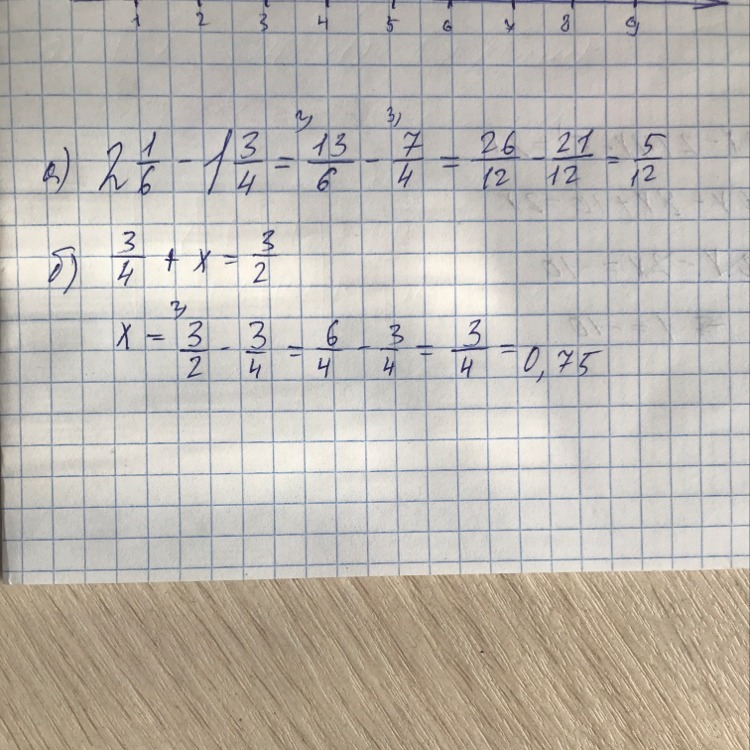 1 2 3 4 5 6 7 8 9
а) 2 1/6 - 1 3/4 = 2) 13/6 - 3) 7/4 = 26/12 - 21/12 = 5/12
б) 3/4 + x = 3/2
x = 2) 3/2 - 3/4 = 6/4 - 3/4 = 3/4 = 0,75